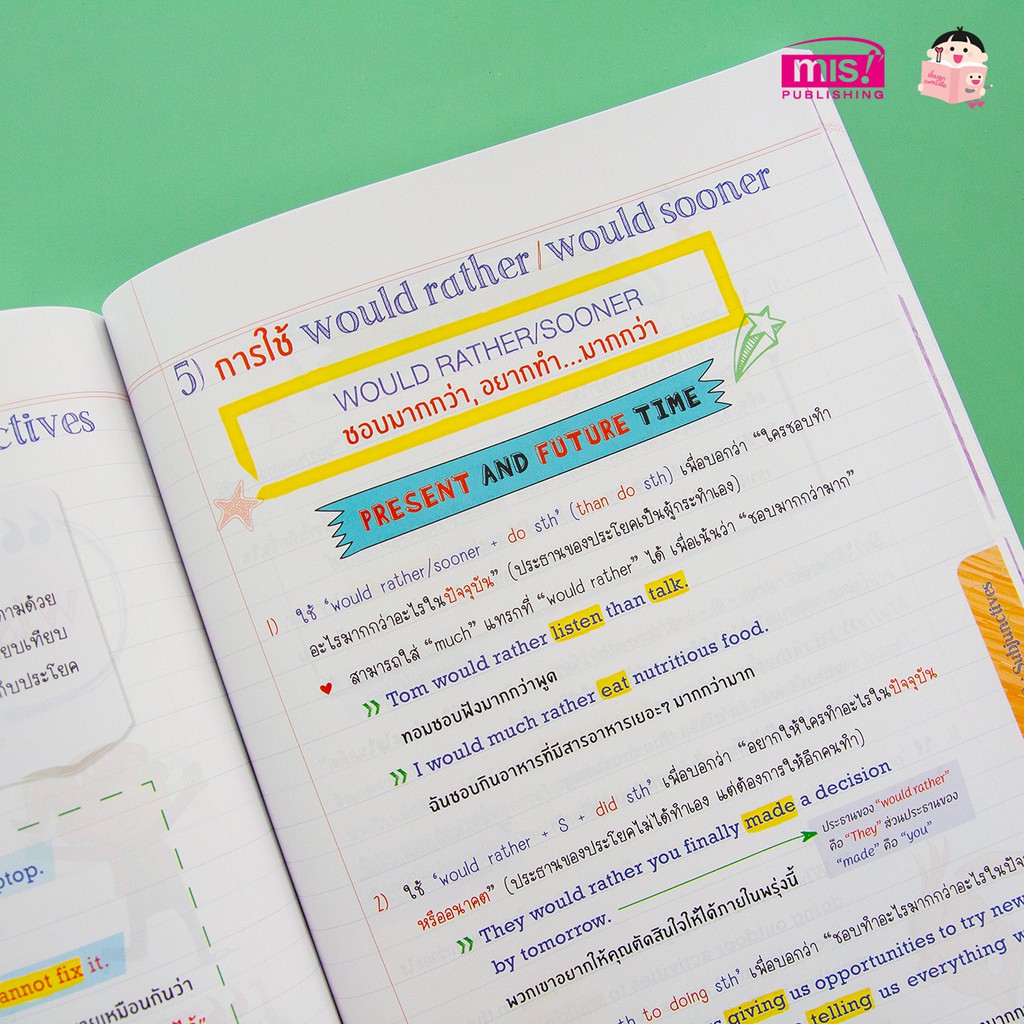 mis!
PUBLISHING
5) การใช้ would rather/would sooner
WOULD RATHER/SOONER
ชอบมากกว่า, อยากทำ...มากกว่า
PRESENT AND FUTURE TIME
1) ใช้ ‘would rather/sooner + do sth’ (than do sth) เพื่อบอกว่า “ใครชอบทำ
อะไรมากกว่าอะไรในปัจจุบัน” (ประธานของประโยคเป็นผู้กระทำเอง)
♥ สามารถใส่ “much” แทรกที่ “would rather” ได้ เพื่อเน้นว่า “ชอบมากกว่ามาก”
Tom would rather listen than talk.
ทอมชอบฟังมากกว่าพูด
I would much rather eat nutritious food.
ฉันชอบกินอาหารที่มีสารอาหารเยอะๆ มากกว่ามาก
2) ใช้ ‘would rather + S + did sth’ เพื่อบอกว่า “อยากให้ใครทำอะไรในปัจจุบัน
หรืออนาคต” (ประธานของประโยคไม่ได้ทำเอง แต่ต้องการให้อีกคนทำ)
They would rather you finally made a decision
by tomorrow.
ประธานของ “would rather”
คือ “They” ส่วนประธานของ
“made” คือ “you”
พวกเขาอยากให้คุณตัดสินใจให้ได้ภายในพรุ่งนี้
sth to doing sth’ เพื่อบอกว่า “ชอบทำอะไรมากกว่าอะไรในปัจ
giving us opportunities to try new
telling us everything w
Subjunctives
ctives
ตามด้วย
ียบเทียบ
กับประโยค
ptop.
annot fix it.
ายเหมือนกันว่า